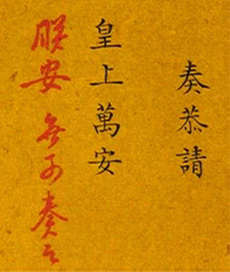 奏恭請
皇上萬安
朕安 無可奏之